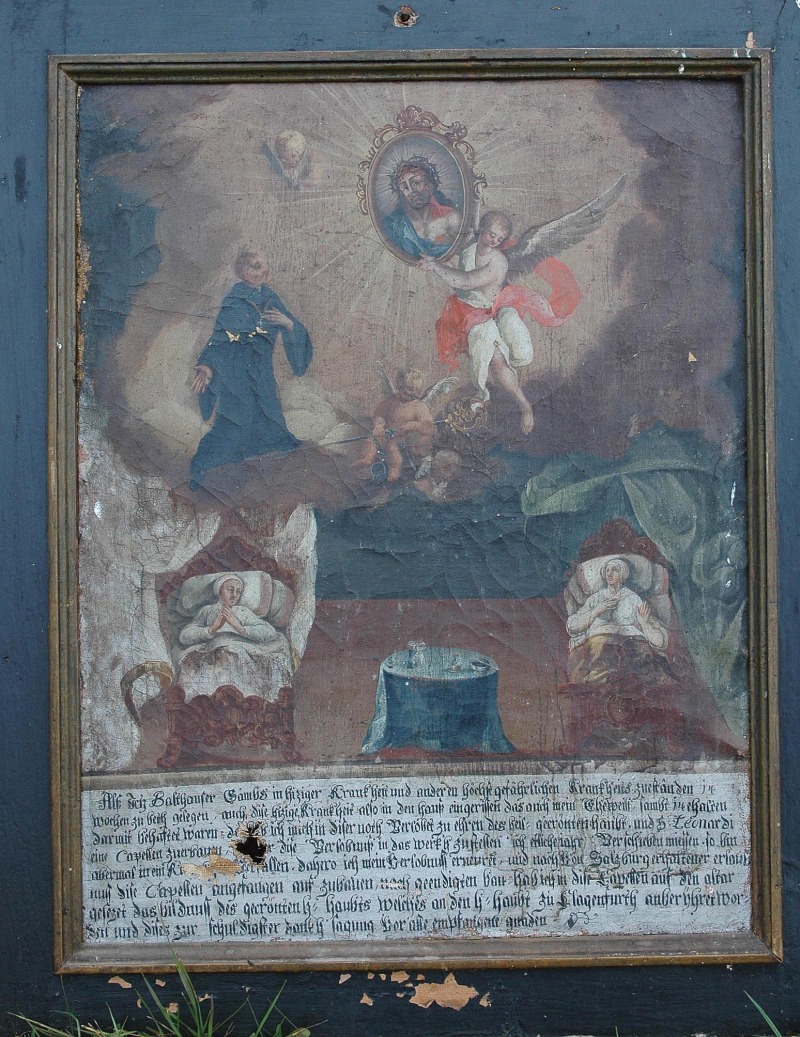 Alß ich Balthauser Gämbs in hiziger Kranckheit und anderen höchst gefährlichen Kranckheits zuständen 14
wochen zu beth gelegen, auch dise hizige Kranckheit also in den hauß eingerissen das auch mein Eheweib, sambt
darmit behafftet waren: ich mich in diser noth Verlobet zu ehren des heil: gecrönten haubt, und S. Leonardi
eine Capellen zuerbauen dise Verlobnuß in das werck zustellen ich etliche Jahr Verschieben miesen, so bin
abermal in ein gefallen, dahero ich mein Verlobnuß erneuret, und nach Von Salzburg erhaltener erlaub
nuß dise Capellen angefangen auf zubauen, nach geendigten bau hab ich in dise Capellen auf den altar
gesezet das bildnuß des gecrönten H: haubts welches an den H: haubt zu Clagenfurth anberühret wor-
den und dises zur schuldigster danckh sagung Vor alle empfangene gnaden